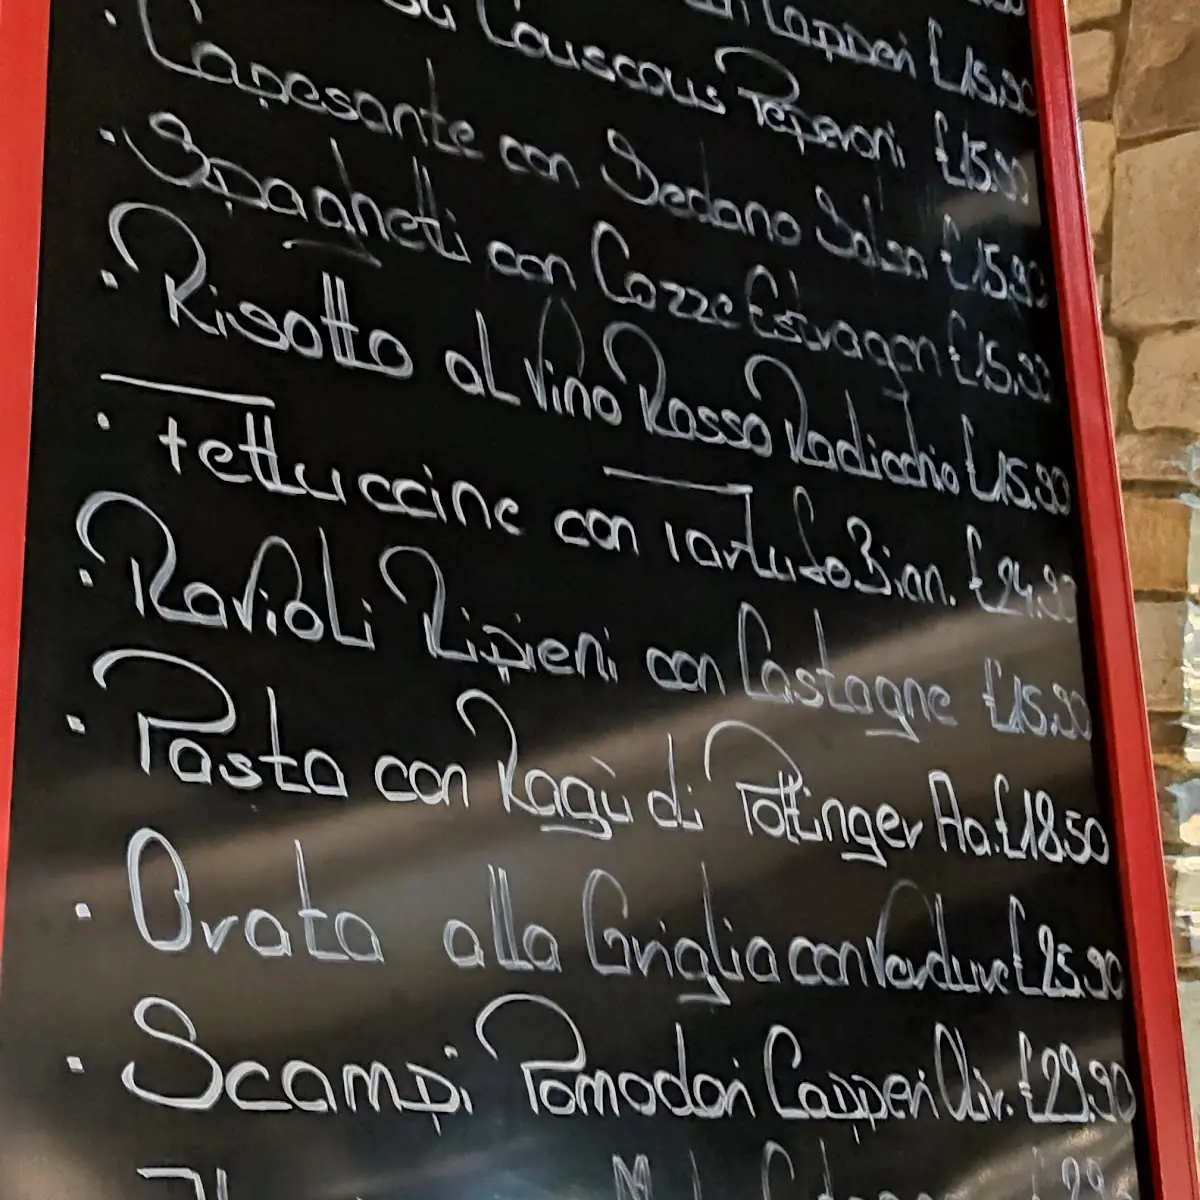 Capperi £15.90
Couscous Peperoni £15.90
· Capesante con Sedano Salsa £15.90
· Spaghetti con Cozze Estragon £15.90
· Risotto al Vino Rosso Radicchio £15.90
· Fettuccine con Tartufo Bian. £24.90
· Ravioli Ripieni con Castagne £15.90
· Pasta con Ragù di Pottinger Aa. £18.50
· Orata alla Griglia con Verdure £25.90
· Scampi Pomodori Capperi Oliv. £29.90